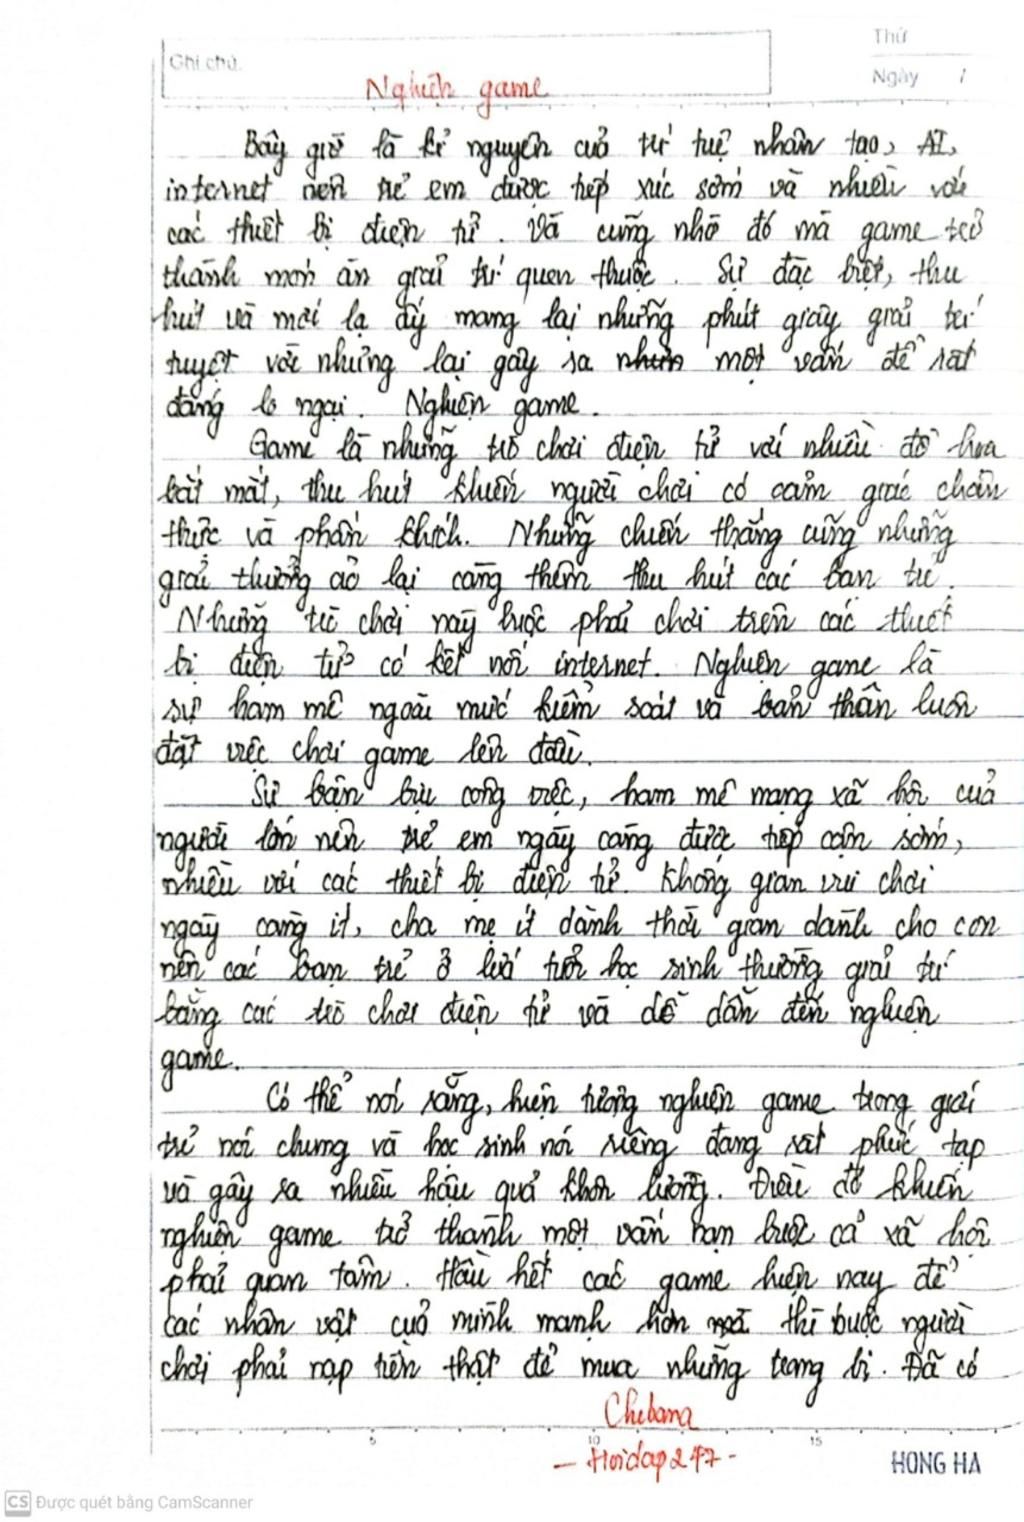 Ghi chú:
Thứ
Ngày /
Nghiện game
Bây giờ là kỉ nguyên của trí tuệ nhân tạo, AI,
internet nên trẻ em được tiếp xúc sớm và nhiều với
các thiết bị điện tử. Và cũng nhờ đó mà game trở
thành món ăn giải trí quen thuộc. Sự đặc biệt, thu
hút và mới lạ ấy mang lại những phút giây giải trí
tuyệt vời nhưng lại gây ra một vấn đề rất
đáng lo ngại. Nghiện game.
Game là những trò chơi điện tử với nhiều đồ họa
bắt mắt, thu hút khiến người chơi có cảm giác chân
thực và phấn khích. Những chiến thắng cũng những
giải thưởng ảo lại càng thêm thu hút các bạn trẻ.
Những trò chơi này buộc phải chơi trên các thiết
bị điện tử có kết nối internet. Nghiện game là
sự ham mê ngoài mức kiểm soát và bản thân luôn
đặt việc chơi game lên đầu.
Sự bận bịu công việc, ham mê mạng xã hội của
người lớn nên trẻ em ngày càng được tiếp cận sớm,
nhiều với các thiết bị điện tử. Không gian vui chơi
ngày càng ít, cha mẹ ít dành thời gian dành cho con
nên các bạn trẻ ở lứa tuổi học sinh thường giải trí
bằng các trò chơi điện tử và dễ dẫn đến nghiện
game.
Có thể nói rằng, hiện tượng nghiện game trong giới
trẻ nói chung và học sinh nói riêng đang rất phức tạp
và gây ra nhiều hậu quả khôn lường. Điều đó khiến
nghiện game trở thành một vấn nạn buộc cả xã hội
phải quan tâm. Hầu hết các game hiện nay để
các nhân vật của mình mạnh hơn thì buộc người
chơi phải nạp tiền thật để mua những trang bị. Đã có
Chibana
- Hoidap247 -
5 10 15
HONG HA
CS Được quét bằng CamScanner